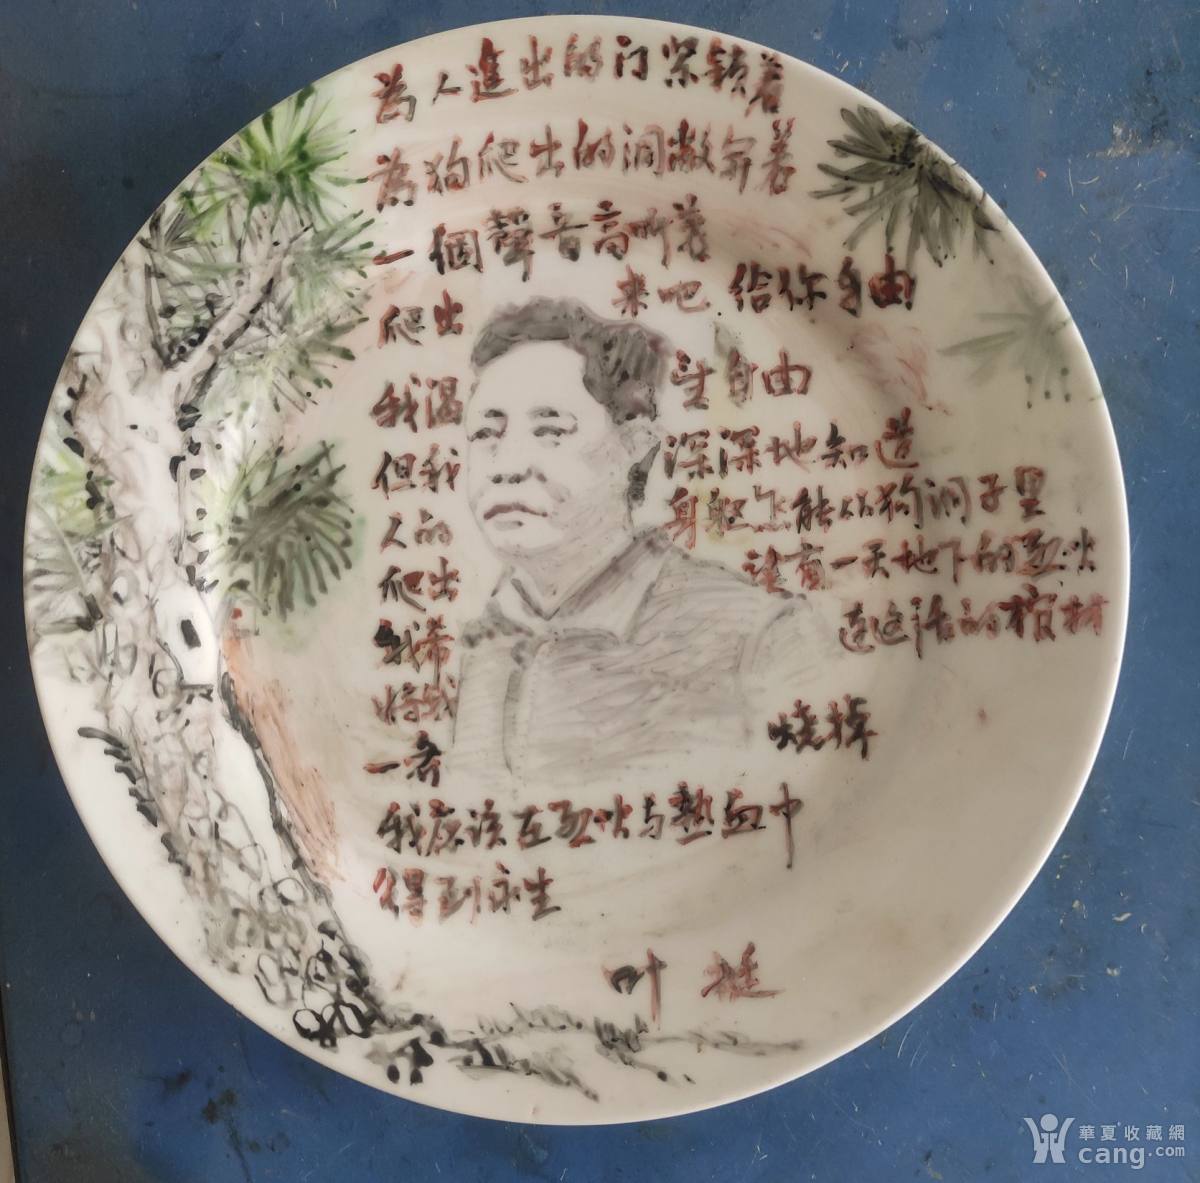 為人進出的门紧锁着
為狗爬出的洞敞开着
一個聲音高叫着
爬出来吧 给你自由
我渴望自由
但我深深地知道
人的身躯怎能从狗洞子里
爬出
我希望有一天地下的烈火
将我连这活的棺材
一齐烧掉
我应该在烈火与熱血中
得到永生
叶挺
華夏收藏網
cang.com